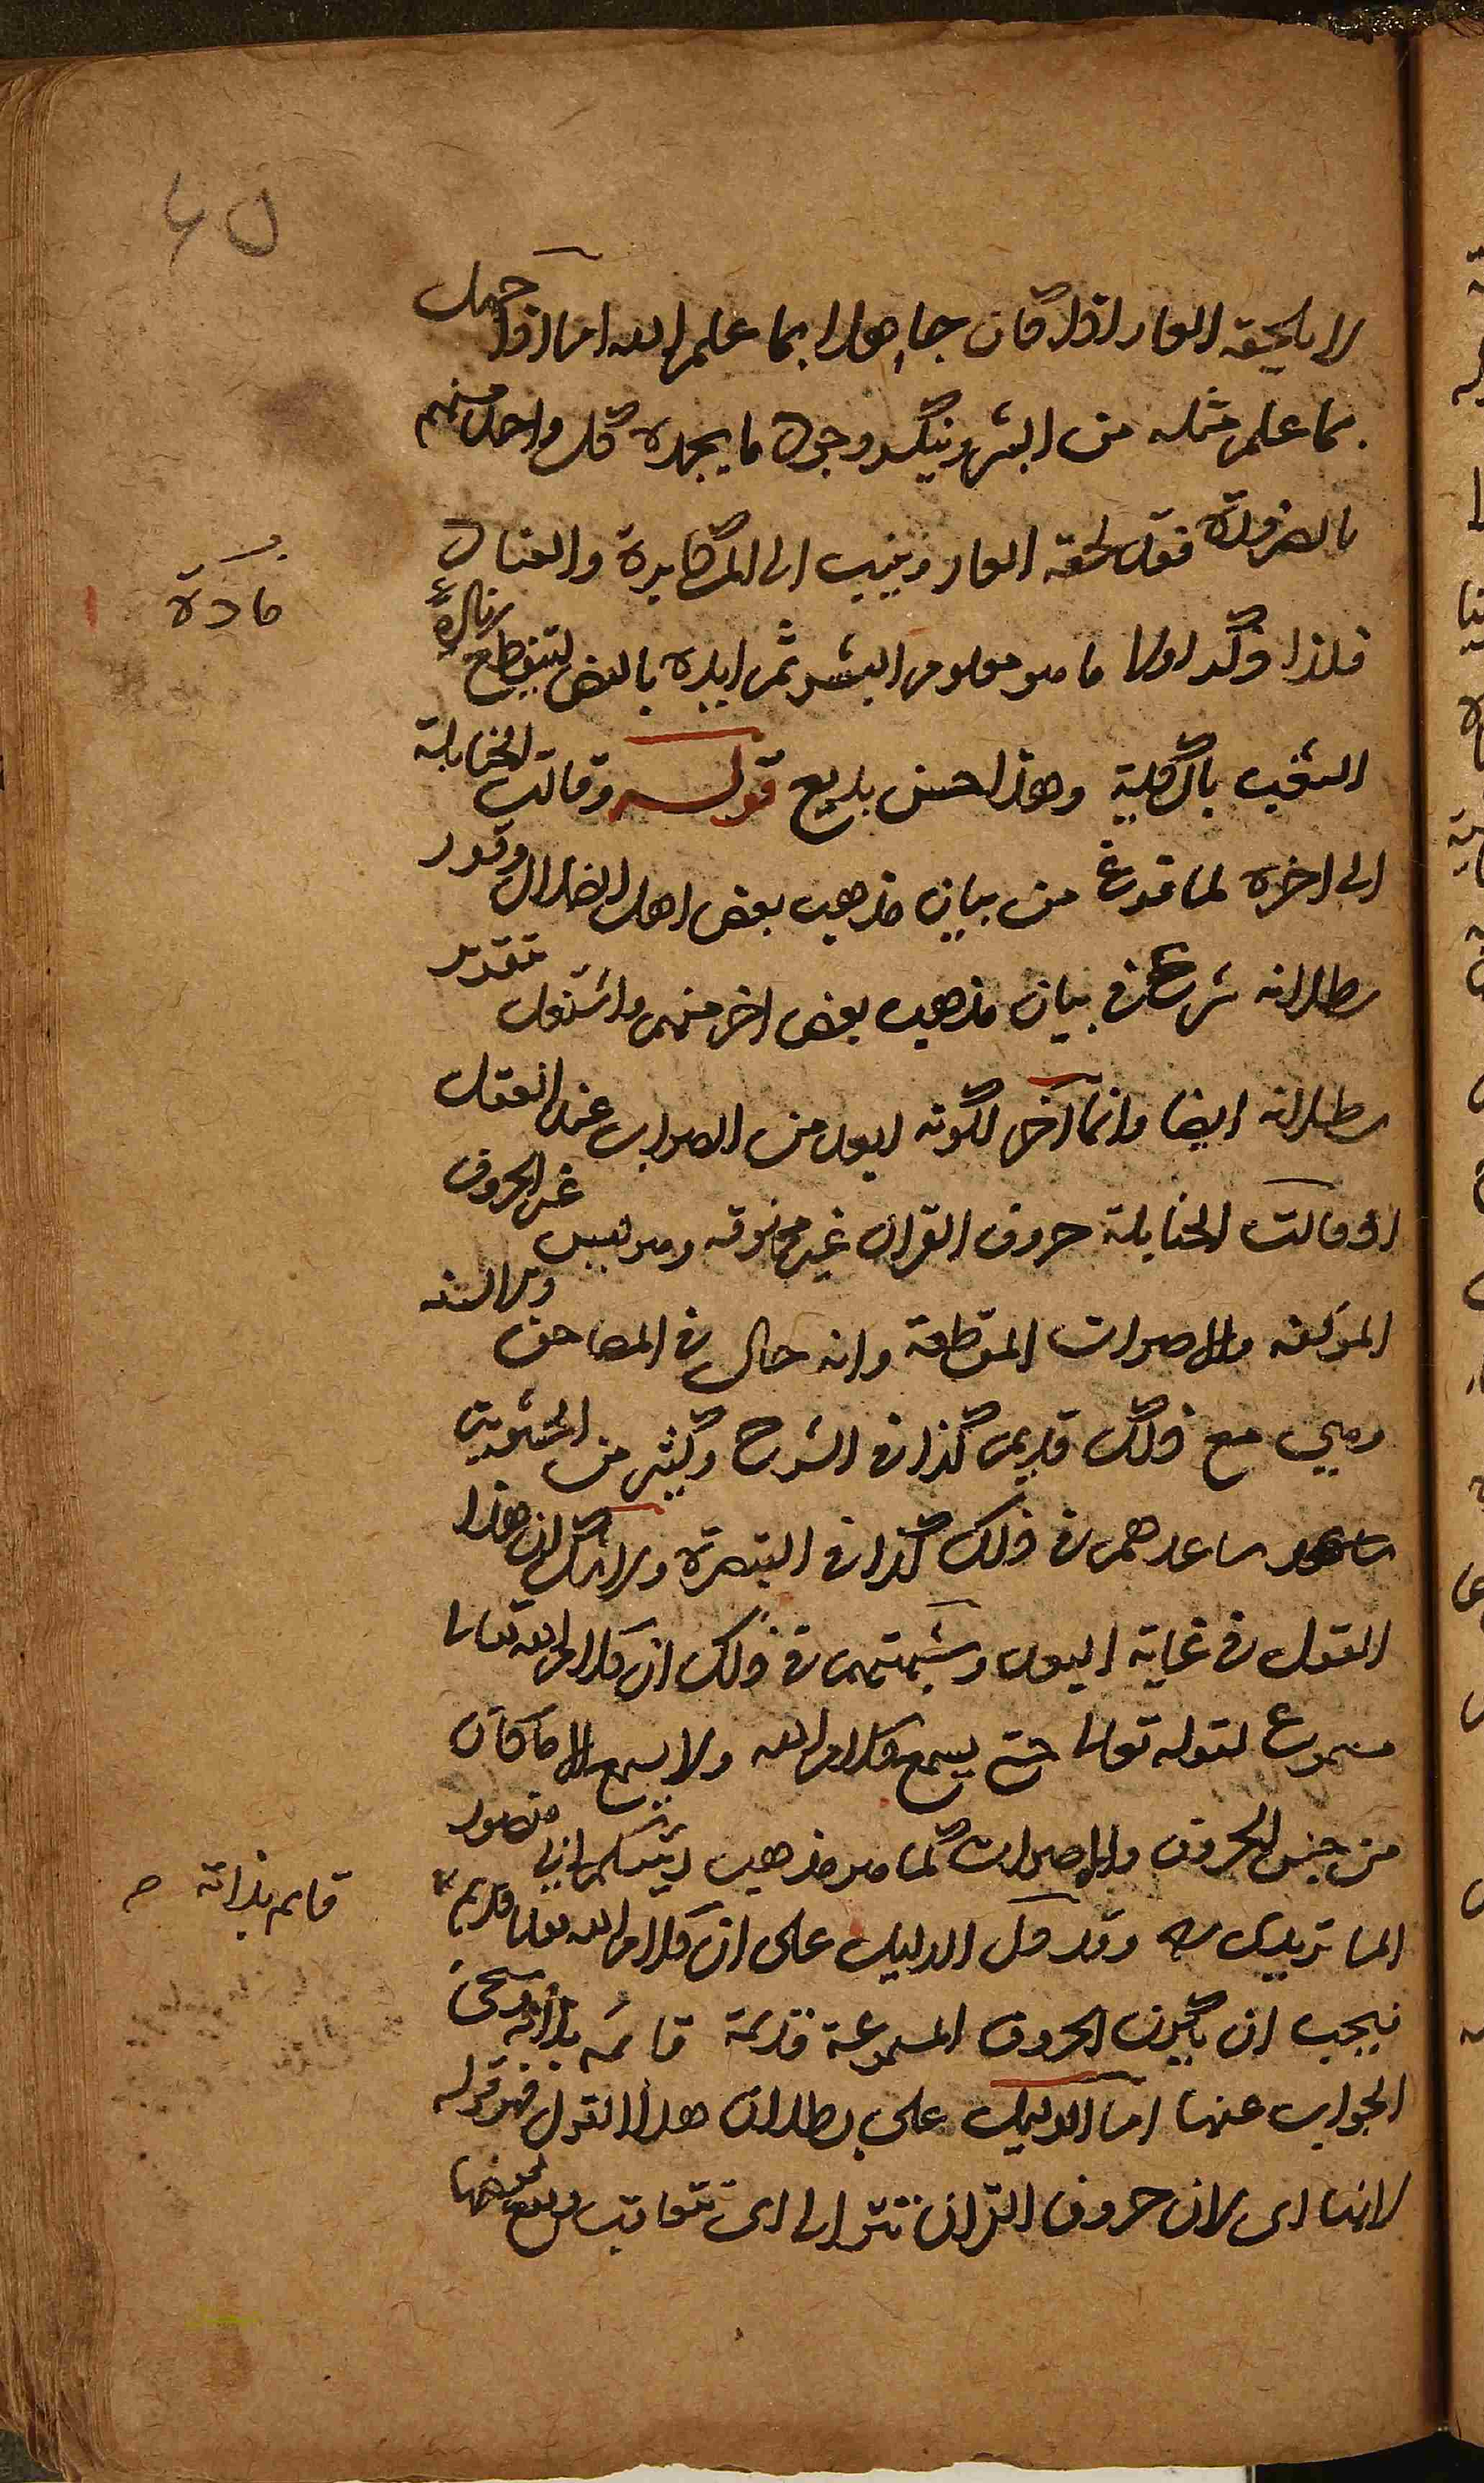 40
لا يلحقه العار اذا كان جاهلا بما علم الله اما اذا جهل
بما علم مثله من البشر وينكر وجود ما يجده كل واحد منهم
بالضرورة فقد لحقه العار وينسب الى المكابرة والعناد
فلذا ذكر اولا ما هو معلوم البشر ثم ايده بالنص لينقطع
مادة
الشغب بالكلية وهذا حسن بديع قوله وقالت الحنابلة
الى اخره لما فرغ من بيان مذهب بعض اهل الضلال وقرر
بطلانه شرع في بيان مذهب بعض اخر منهم واشتغل بتقرير
بطلانه ايضا وانما اخر لكونه ابعد من الصواب عند العقل
اذ قالت الحنابلة حروف القران غير مخلوقة وهو ليس غير الحروف
المؤلفة والاصوات المقطعة وانه حال في المصاحف والالسنة
وهي مع ذلك قديم كذا في الشرح وكثير من الحشوية
ساعدهم في ذلك كذا في التبصرة ولا شك ان هذا
القول في غاية البعد وشبهتهم في ذلك ان كلام الله تعالى
مسموع لقوله تعالى حتى يسمع كلام الله ولا يسمع الا ما كان
من جنس الحروف والاصوات كما هو مذهب رئيسكم ابي منصور
الماتريدي وقد دل الدليل على ان كلام الله تعالى قديم
قائم بذاته صح
فيجب ان يكون الحروف المسموعة قديمة قائمة بذاته
الجواب عنها اما الدليل على بطلان هذا القول فهو قوله
لانها اى لان حروف القران تتوالى اى تتعاقب ويقع بعضها